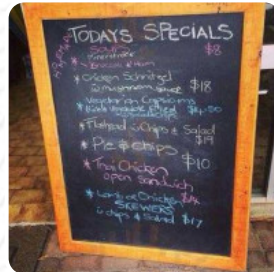 TODAYS SPECIALS
SOUPS $8
Minestrone
Broccoli & Ham
* Chicken Schnitzel
mushroom sauce $18
Vegetarian Capsicums
Filled
* Flathead Chips & Salad
$19
* Pie & chips $10
* Thai Chicken
open sandwich
* Lamb or Chicken
SKEWERS
chips & Salad $17